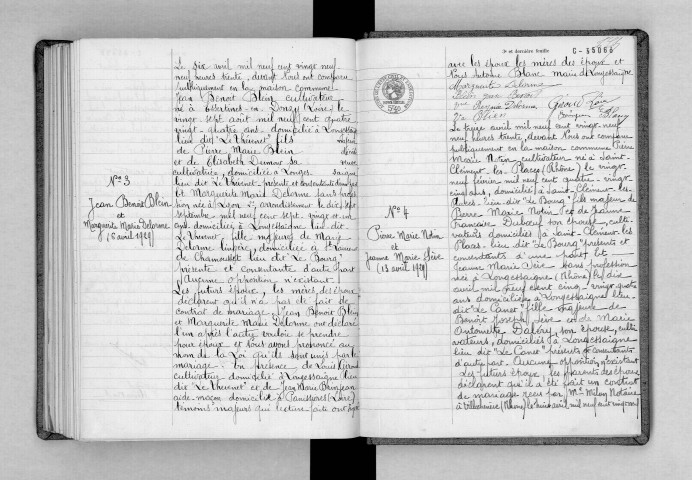 Le six avril mil neuf cent vingt neuf
neuf heures trente, devant Nous ont comparu
publiquement en la maison commune
Jean Benoît Blein cultivateur
né à Essertines en Donzy (Loire) le
vingt sept août mil neuf cent quatre
vingt quatre ans domicilié à Longessaigne
lieu dit "Le Thévenet" fils
de Pierre Marie Blein
et de Elisabeth Dumont sa veuve
cultivatrice, domiciliée à Longessaigne
lieu dit "Le Thévenet" présente et consentante d'une part
et Marguerite Marie Delorme sans profes
sion née à Lyon 2e arrondissement le dix sept
septembre mil neuf cent sept vingt et un
ans domiciliée à Longessaigne lieu dit
"Le Thévenet" fille majeure de Marie
Delorme lingère, domiciliée à St Laurent
de Chamousset lieu dit "Le Bourg"
présente et consentante d'autre part
Aucune opposition n'existant
Les futurs époux, les mères des époux
déclarent qu'il n'a pas été fait de
contrat de mariage. Jean Benoît Blein
et Marguerite Marie Delorme ont déclaré
l'un après l'autre vouloir se prendre
pour époux et Nous avons prononcé au
nom de la Loi qu'ils sont unis par le
mariage. En présence de Louis Giroud
cultivateur domicilié à Longessaigne lieu
dit "Le Thévenet" et de Jean Marie
aide-maçon domicilié à Panissières (Loire)
témoins majeurs qui lecture faite ont signé
N° 3
Jean Benoît Blein
et
Marguerite Marie Delorme
(6 avril 1929)
3e et dernière feuille
C-35066
avec les époux les mères des époux et
Nous Antoine Blanc maire de Longessaigne
Marguerite Delorme
Blein
Le treize avril mil neuf cent vingt-neuf
neuf heures trente, devant Nous ont comparu
publiquement en la maison commune Pierre
Marie Notin, cultivateur né à Saint-
Clément-les-Places (Rhône) le vingt
neuf février mil neuf cent quatre - vingt
cinq ans, domicilié à Saint-Clément-les
Places lieu dit "Le Bourg" fils majeur de
Pierre Marie Notin et de Jeanne
Françoise Duboeuf son épouse, culti
vateurs domiciliés à Saint-Clément-les
Places lieu dit "Le Bourg" présents et
consentants d'une part, et
Jeanne Marie Sève sans profession
née à Longessaigne (Rhône) le dix
avril mil neuf cent cinq - vingt quatre
ans domiciliée à Longessaigne lieu-
dit "Le Canet" fille majeure de
Benoît Joseph Sève et de Marie
Antoinette Dubéry son épouse, culti
vateurs, domiciliés à Longessaigne
lieu dit "Le Canet" présents et consentants
d'autre part. Aucune opposition n'existant
Les futurs époux, les parents des époux
déclarent qu'il a été fait un contrat
de mariage reçu par Me Notaire
à Villechenève (Rhône) le avril mil neuf cent vingt neuf
N° 4
Pierre Marie Notin
et
Jeanne Marie Sève
(13 avril 1929)